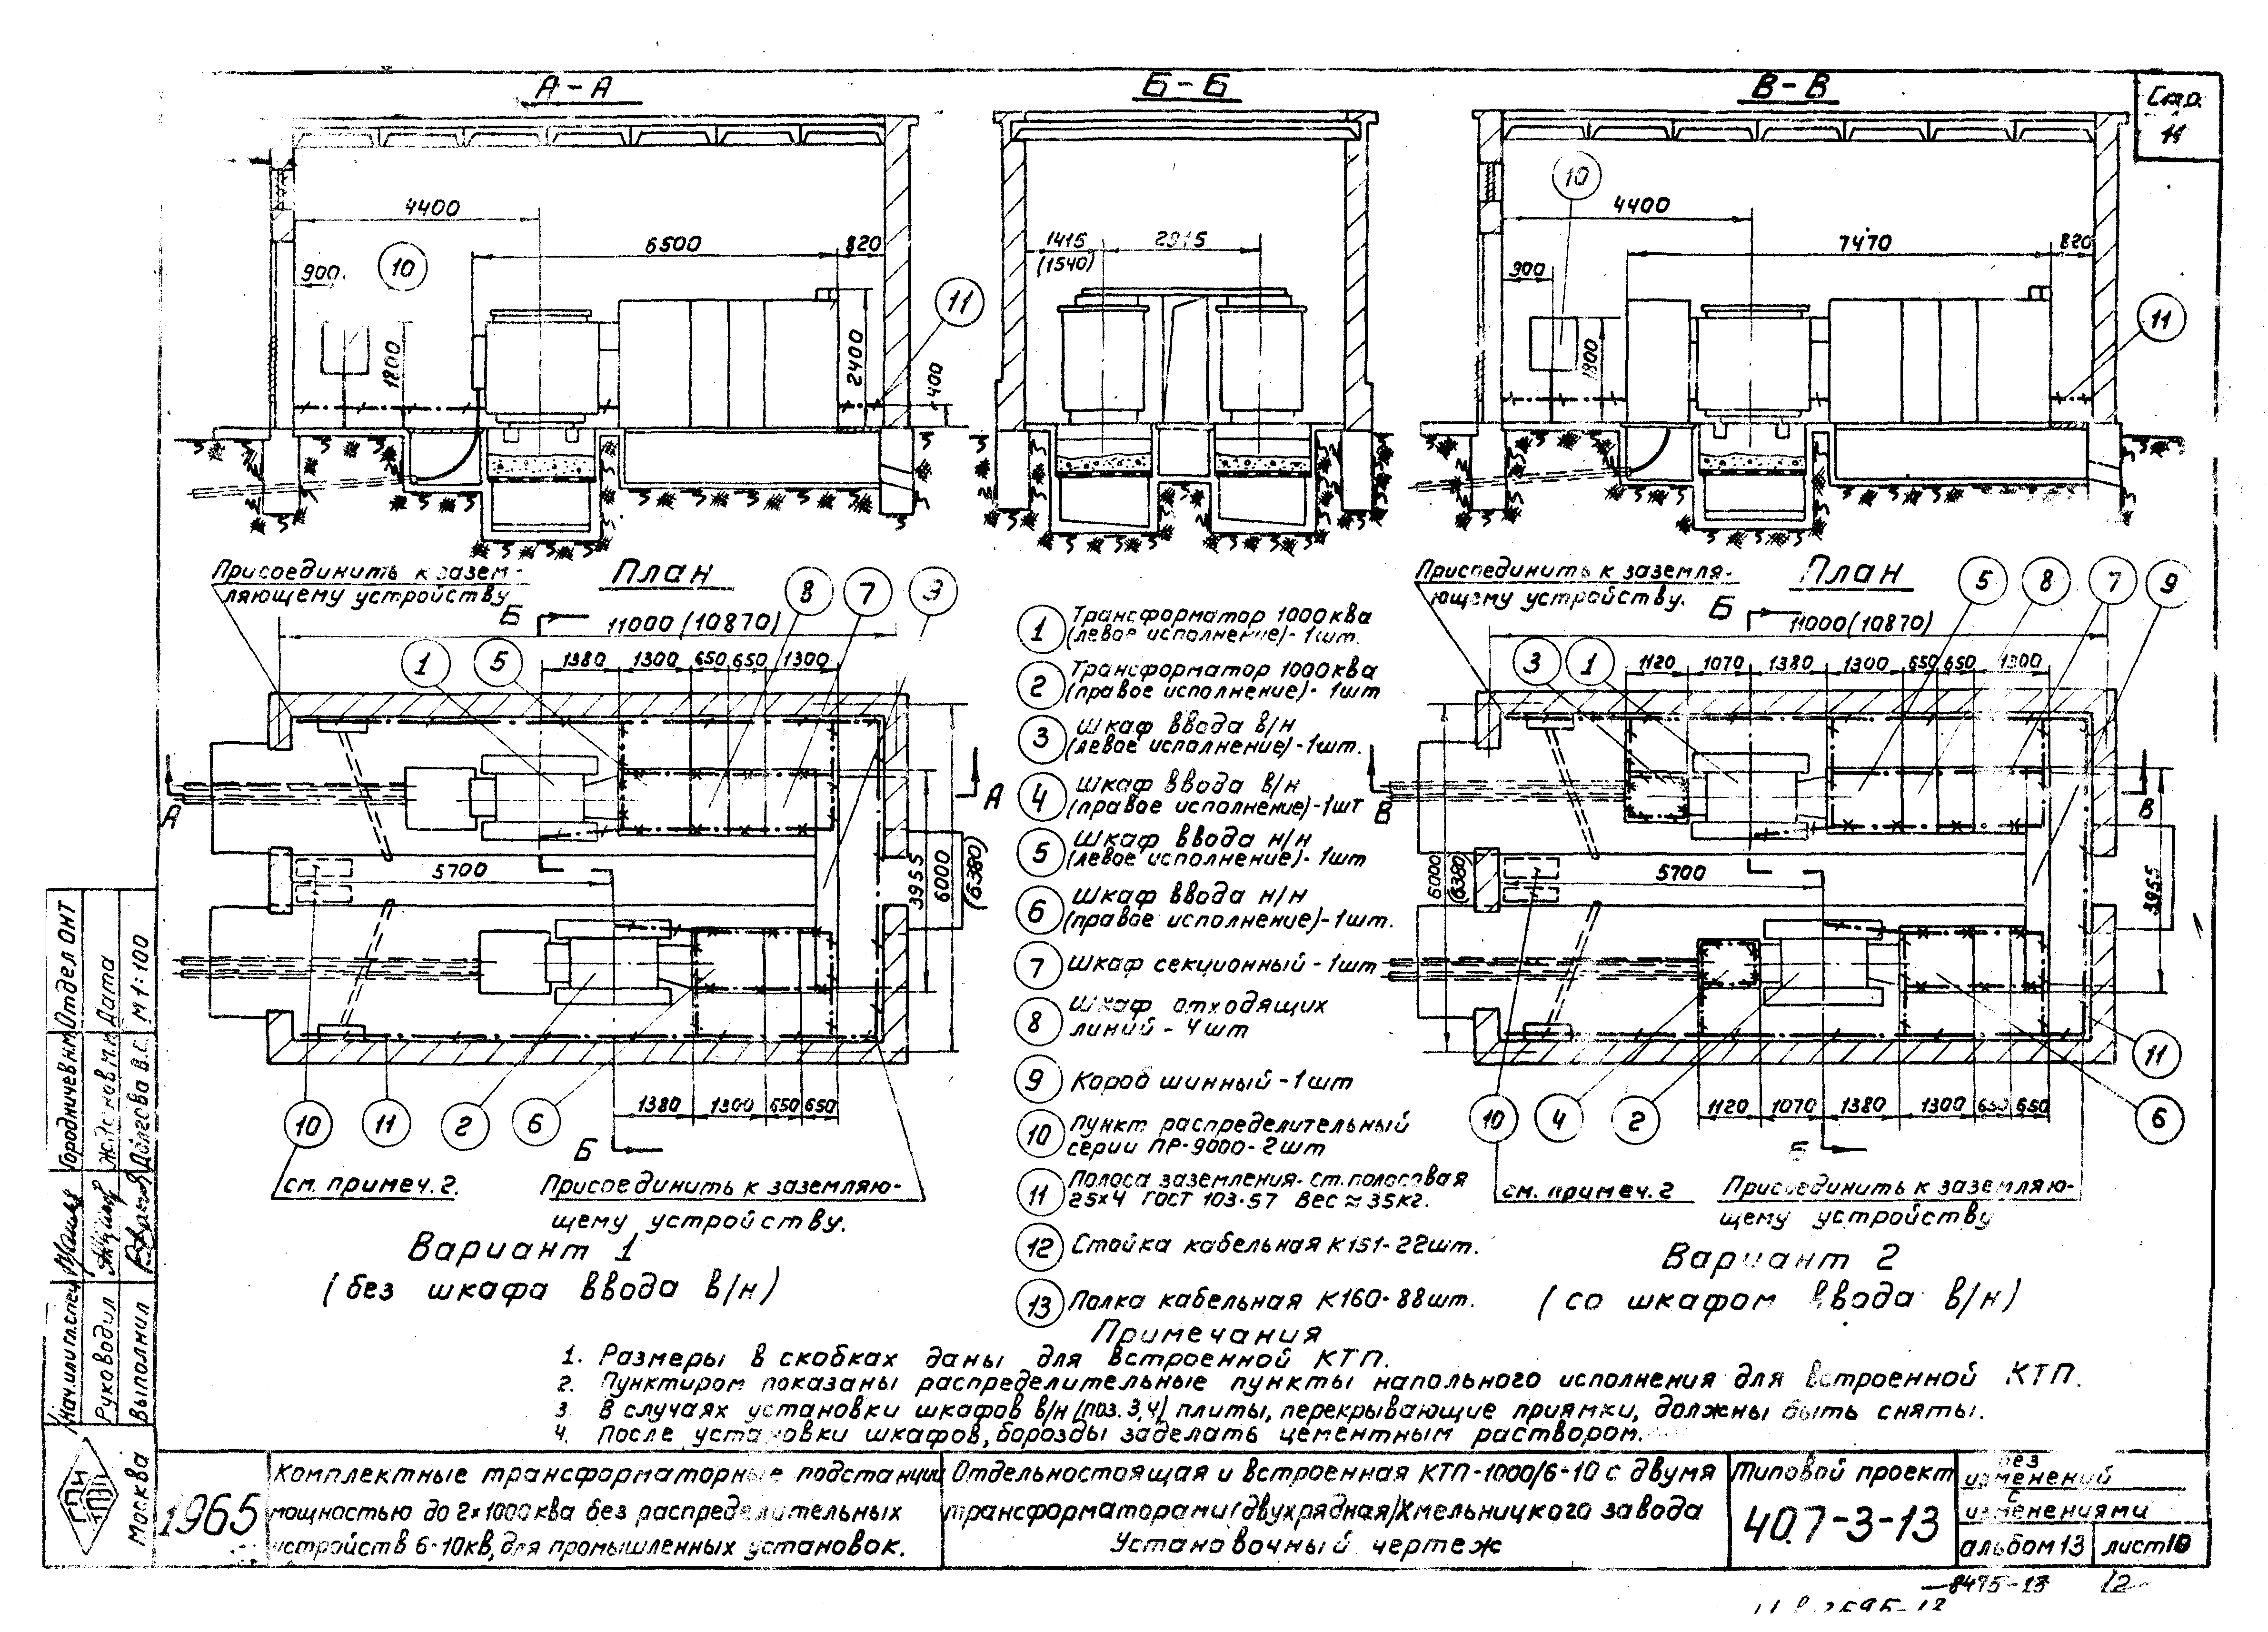 А-А
Б-Б
В-В
Стр.
11
4400
6500
820
900
10
1800
2400
400
11
1415
(1540)
4400
7470
820
900
10
1800
11
Присоединить к зазем-
ляющему устройству
План
Б
11000 (10870)
8
7
9
1
5
1380
1300
650
650
1300
А
А
5700
3955
6000
(6380)
10
11
2
6
1380
1300
650
650
Б
см. примеч. 2.
Присоединить к заземляю-
щему устройству.
Вариант 1
(без шкафа ввода в/н)
1 Трансформатор 1000 ква
(левое исполнение)- 1шт.
2 Трансформатор 1000 ква
(правое исполнение)- 1шт
3 Шкаф ввода в/н
(левое исполнение)-1шт.
4 Шкаф ввода в/н
(правое исполнение)-1шт
5 Шкаф ввода н/н
(левое исполнение)- 1шт
6 Шкаф ввода н/н
(правое исполнение)-1шт.
7 Шкаф секционный-1шт
8 Шкаф отходящих
линий - 4шт
9 Короб шинный-1шт
10 Пункт распределительный
серии ПР-9000-2шт
11 Полоса заземления-ст.полосовая
25х4 ГОСТ 103-57 Вес ≈ 35кг.
12 Стойка кабельная К151-22шт.
13 Полка кабельная К160-88шт.
Присоединить к заземля-
ющему устройству.
План
Б
11000(10870)
5
8
7
9
3
1
1120
1070
1380
1300
650
650
1300
В
В
6000
(6380)
5700
3955
10
4
2
11
6
1120
1070
1380
1300
650
650
Б
см. примеч. 2
Присоединить к заземляю-
щему устройству
Вариант 2
(со шкафом ввода в/н)
Примечания
1. Размеры в скобках даны для встроенной КТП.
2. Пунктиром показаны распределительные пункты напольного исполнения для встроенной КТП.
3. В случаях установки шкафов в/н (поз. 3,4) плиты, перекрывающие приямки, должны быть сняты.
4. После установки шкафов, борозды заделать цементным раствором.
Нач.или гл.спец
Городничев Н.М.
Отдел ОНТ
Руководил
Дата
Выполнил
Долгова В.С.
М 1:100
Москва
1965
Комплектные трансформаторные подстанции
мощностью до 2х1000 ква без распределительных
устройств 6-10кв, для промышленных установок.
Отдельностоящая и встроенная КТП-1000/6-10 с двумя
трансформаторами (двухрядная) Хмельницкого завода
Установочный чертеж
Типовой проект
407-3-13
без
изменений
с
изменениями
альбом 13
лист 10
8475-13
12